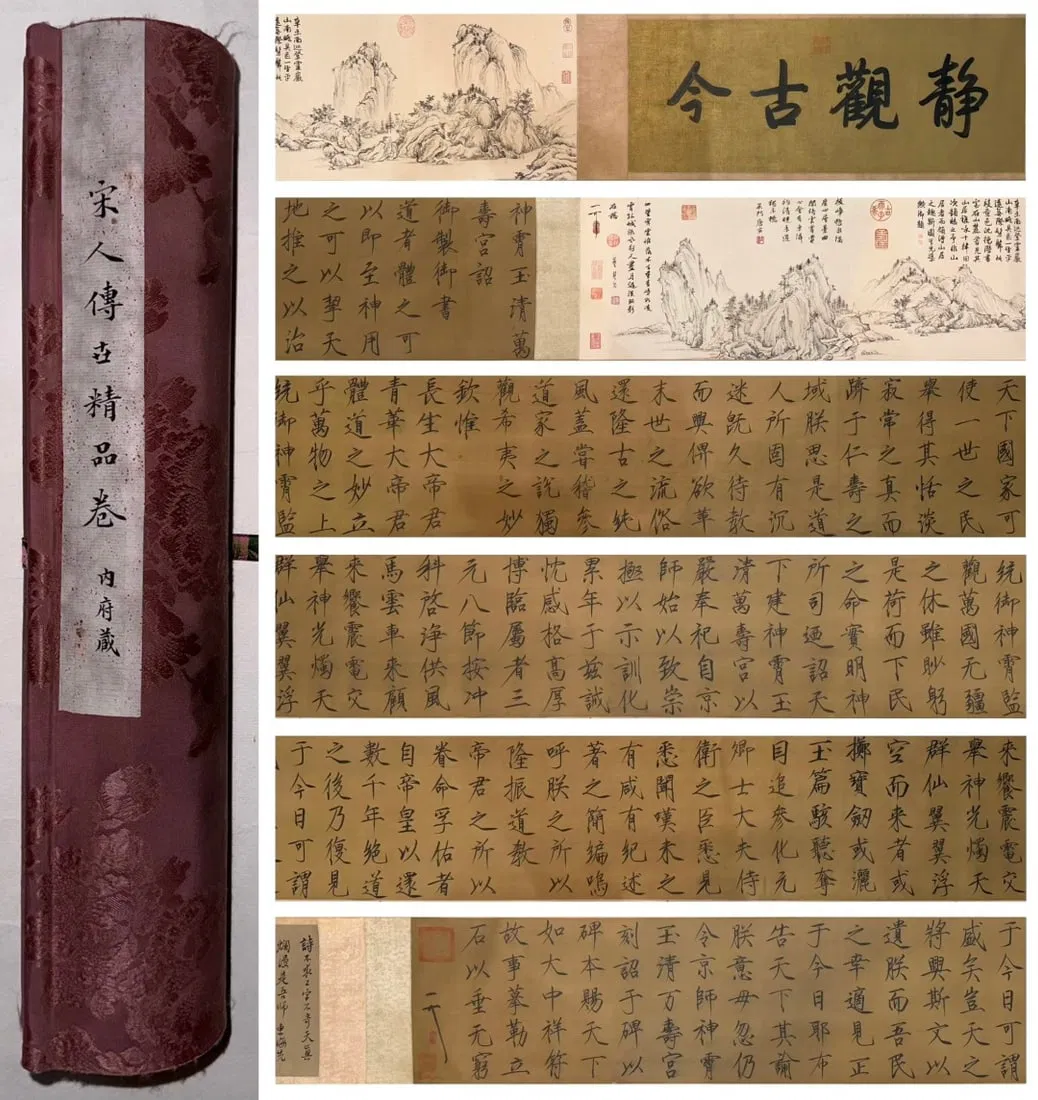 宋人傳世精品卷
內府藏
靜觀古今
神霄玉清萬
壽宮詔
御製御書
道者體之可
以即至神用
之可以挈天
地推之以治
天下國家可
使一世之民
舉得其恬淡
寂常之真而
躋于仁壽之
域朕思是道
人所固有沉
迷既久待教
而興俾欲革
末世之流俗
還隆古之純
風蓋嘗稽參
道家之說獨
觀希夷之妙
欽惟
長生大帝君
青華大帝君
體道之妙立
乎萬物之上
統御神霄監
統御神霄監
觀萬國无疆
之休雖眇躬
是荷而下民
之命實明神
所司迺詔天
下建神霄玉
清萬壽宮以
嚴奉祀自京
師始以致崇
極以示訓化
累年于茲誠
忱感格高厚
博臨屬者三
元八節按沖
科啓淨供風
馬雲車來顧
來饗震電交
舉神光燭天
群仙翼翼浮
來饗震電交
舉神光燭天
群仙翼翼浮
空而來者或
擲寶劒或灑
玉篇駭聽奪
目追參化元
卿士大夫侍
衛之臣悉見
悉聞嘆未之
有咸有紀述
著之簡編嗚
呼朕之所以
隆振道教
帝君之所以
眷命孚佑者
自帝皇以還
數千年絕道
之後乃復見
于今日可謂
于今日可謂
盛矣豈天之
將興斯文以
遺朕而吾民
之幸適見正
于今日耶布
告天下其諭
朕意毋忽仍
令京師神霄
玉清万壽宮
刻詔于碑以
碑本賜天下
如大中祥符
故事摹勒立
石以垂无窮
詩不求工字不奇天真
爛漫是吾師